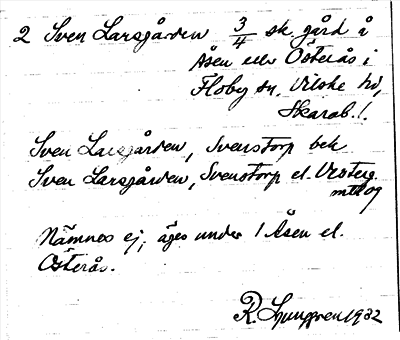 2 Sven Larsgården 3/4 sk. gård å
Åsen eller Österås i
Floby sn, Vilske hd,
Skarab. l.
Sven Larsgården, Svenstorp bek
Sven Larsgården, Svenstorp el.
Nämnes ej; äges under 1 Åsen el.
Österås.
R. Ljunggren 1932